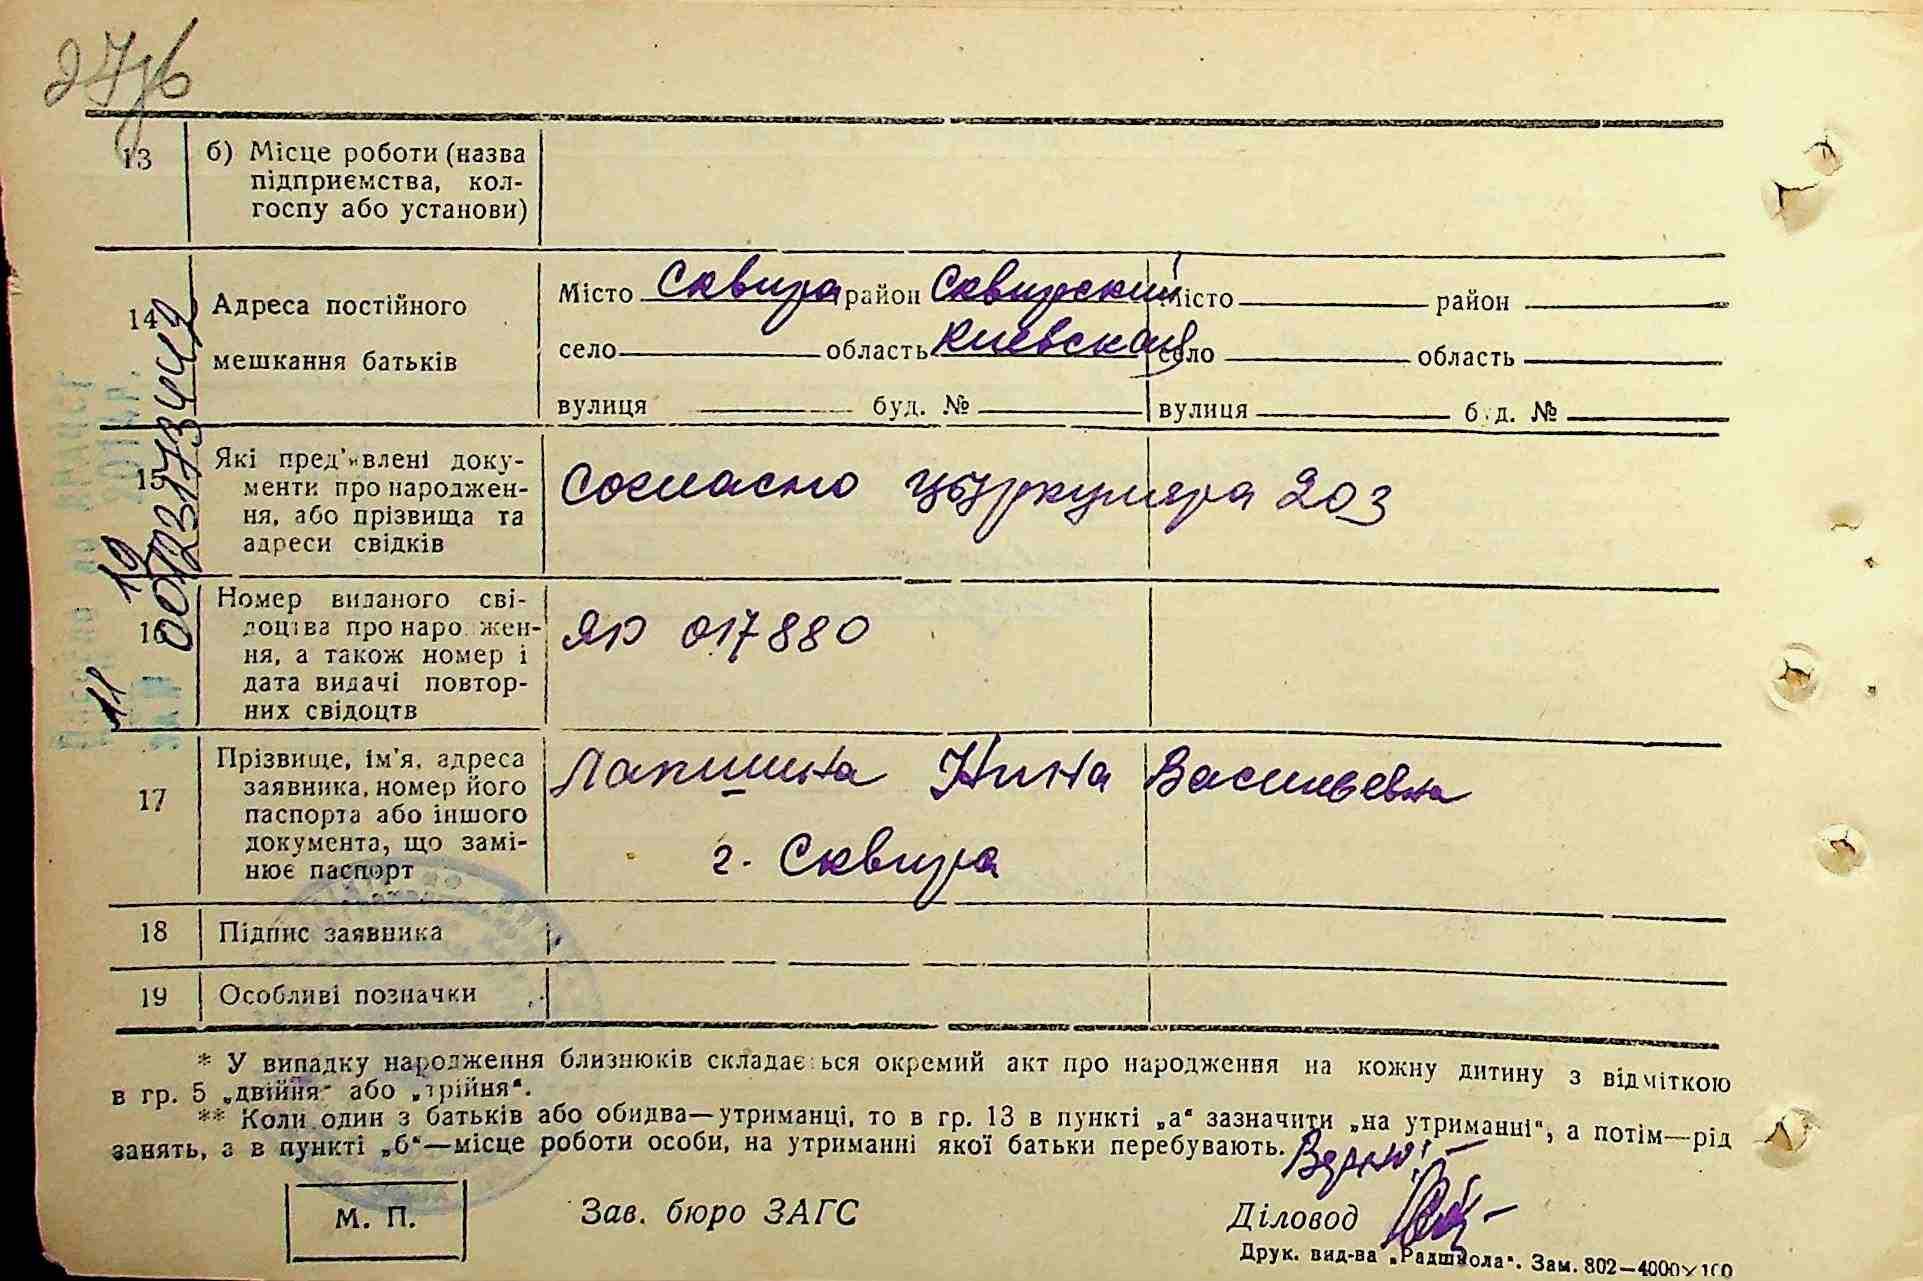 27зв
13 б) Місце роботи (назва
підприємства, кол-
госпу або установи)
14 Адреса постійного
мешкання батьків
Місто Сквира район Сквирский
село область Киевская
вулиця буд. №
Місто район
село область
вулиця буд. №
15 Які пред'явлені доку-
менти про народжен-
ня, або прізвища та
адреси свідків
Согласно цыркуляра 203
16 Номер виданого сві-
доцтва про народжен-
ня, а також номер і
дата видачі повтор-
них свідоцтв
ЯР 017880
17 Прізвище, ім'я, адреса
заявника, номер його
паспорта або іншого
документа, що замі-
нює паспорт
Лапшина Нина Васильевна
г. Сквира
18 Підпис заявника
19 Особливі позначки
* У випадку народження близнюків складається окремий акт про народження на кожну дитину з відміткою
в гр. 5 „двійня" або „трійня".
** Коли один з батьків або обидва—утриманці, то в гр. 13 в пункті „а" зазначити „на утриманні", а потім—рід
занять, а в пункті „б"—місце роботи особи, на утриманні якої батьки перебувають.
Верно:
М. П.
Зав. бюро ЗАГС
Діловод
Друк. вид-ва „Радшкола". Зам. 802—4000×100
11 19
00123173442